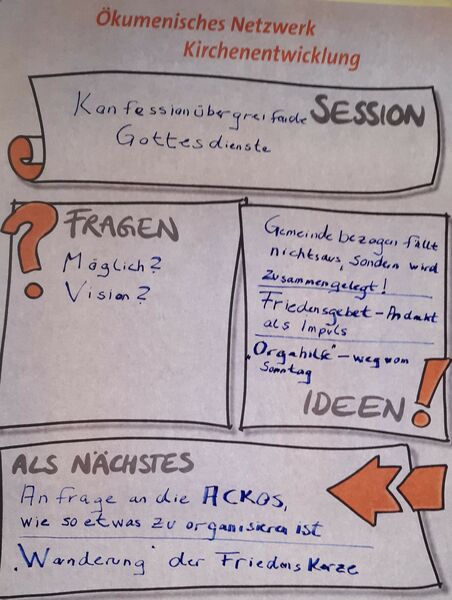 Ökumenisches Netzwerk
Kirchenentwicklung
Konfessionübergreifende SESSION
Gottesdienste
? FRAGEN
Möglich?
Vision?
Gemeinde bezogen fällt
nichts aus, sondern wird
zusammengelegt!
Friedensgebet - Andakt
als Impuls
„Orgahilfe" - weg vom
Sonntag
IDEEN!
ALS NÄCHSTES
Anfrage an die ACKOS,
wie so etwas zu organisieren ist
„Wanderung" der Friedens Kerze